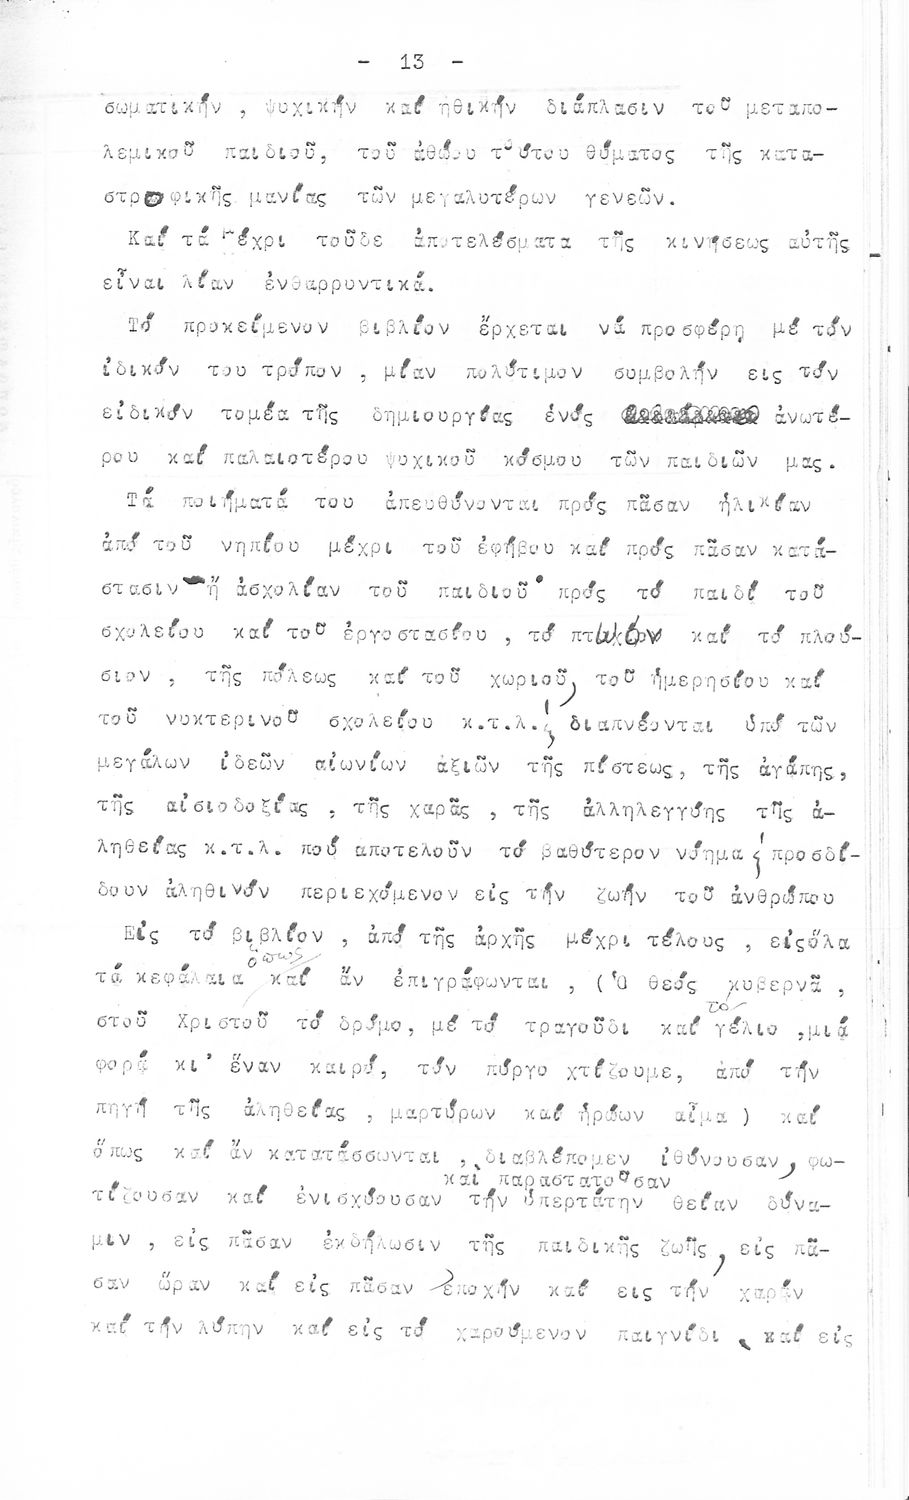 - 13 -
σωματικήν , ψυχικήν καί ἠθικήν διάπλασιν τοῦ μεταπο-
λεμικοῦ παιδιοῦ, τοῦ ἀθώου τούτου θύματος τῆς κατα-
στροφικῆς μανίας τῶν μεγαλυτέρων γενεῶν.
Καί τά μέχρι τοῦδε ἀποτελέσματα τῆς κινήσεως αὐτῆς
εἶναι λίαν ἐνθαρρυντικά.
Τό προκείμενον βιβλίον ἔρχεται νά προσφέρη μέ τόν
ἰδικόν του τρόπον , μίαν πολύτιμον συμβολήν εις τόν
εἰδικόν τομέα τῆς δημιουργίας ἑνός ἀνωτέ-
ρου καί παλαιοτέρου ψυχικοῦ κόσμου τῶν παιδιῶν μας.
Τά ποιήματά του ἀπευθύνονται πρός πᾶσαν ἡλικίαν
ἀπό τοῦ νηπίου μέχρι τοῦ ἐφήβου καί πρός πᾶσαν κατά-
στασιν ἤ ἀσχολίαν τοῦ παιδιοῦ· πρός τό παιδί τοῦ
σχολείου καί τοῦ ἐργοστασίου , τό πτωχόν καί τό πλού-
σιον , τῆς πόλεως καί τοῦ χωριοῦ, τοῦ ἡμερησίου καί
τοῦ νυκτερινοῦ σχολείου κ.τ.λ. διαπνέονται ὑπό τῶν
μεγάλων ἰδεῶν αἰωνίων ἀξιῶν τῆς πίστεως, τῆς ἀγάπης,
τῆς αἰσιοδοξίας , τῆς χαρᾶς , τῆς ἀλληλεγγύης τῆς ἀ-
ληθείας κ.τ.λ. πού αποτελοῦν τό βαθύτερον νόημα προσδί-
δουν ἀληθινόν περιεχόμενον εἰς τήν ζωήν τοῦ ἀνθρώπου
Εἰς τό βιβλίον , ἀπό τῆς ἀρχῆς μέχρι τέλους , εἰςὅλα
ὅπως
τά κεφάλαια καί ἄν ἐπιγράφωνται , (Ὁ θεός κυβερνᾶ ,
τό
στοῦ Χριστοῦ τό δρόμο, μέ τό τραγοῦδι καί γέλιο ,μιά
φορά κι' ἕναν καιρό, τόν πύργο χτίζουμε, ἀπό τήν
πηγή τῆς ἀληθείας , μαρτύρων καί ἡρώων αἷμα ) καί
ὅπως καί ἄν κατατάσσωνται , διαβλέπομεν ἰθύνουσαν, φω-
καί παραστατοῦσαν
τίζουσαν καί ἐνισχύουσαν τήν ὑπερτάτην θείαν δύνα-
μιν , εἰς πᾶσαν ἐκδήλωσιν τῆς παιδικῆς ζωῆς, εἰς πᾶ-
σαν ὥραν καί εἰς πᾶσαν ἐποχήν καί εις τήν χαράν
καί τήν λύπην καί εἰς τό χαρούμενον παιγνίδι , καί εἰς